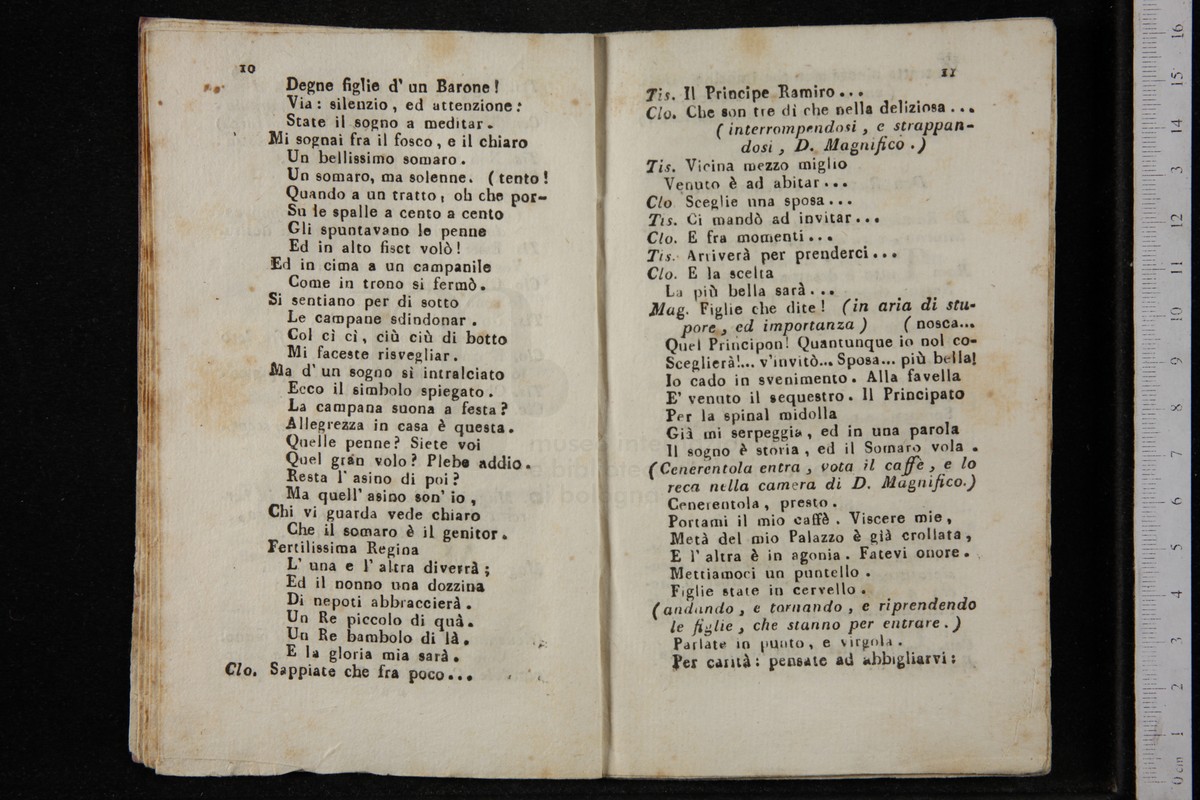 10
Degne figlie d' un Barone!
Via: silenzio, ed attenzione:
State il sogno a meditar.
Mi sognai fra il fosco, e il chiaro
Un bellissimo somaro.
Un somaro, ma solenne. (tento!
Quando a un tratto, oh che por-
Su le spalle a cento a cento
Gli spuntavano le penne
Ed in alto fisct volò!
Ed in cima a un campanile
Come in trono si fermò.
Si sentiano per di sotto
Le campane sdindonar.
Col cì cì, ciù ciù di botto
Mi faceste risvegliar.
Ma d' un sogno sì intralciato
Ecco il simbolo spiegato.
La campana suona a festa?
Allegrezza in casa è questa.
Quelle penne? Siete voi
Quel gran volo? Plebe addio.
Resta l' asino di poi?
Ma quell' asino son' io,
Chi vi guarda vede chiaro
Che il somaro è il genitor.
Fertilissima Regina
L' una e l' altra diverrà;
Ed il nonno una dozzina
Di nepoti abbraccierà.
Un Re piccolo di quà.
Un Re bambolo di là.
E la gloria mia sarà.
Clo. Sappiate che fra poco...
11
Tis. Il Principe Ramiro...
Clo. Che son tre dì che nella deliziosa...
(interrompendosi, e strappan-
dosi, D. Magnifico.)
Tis. Vicina mezzo miglio
Venuto è ad abitar...
Clo Sceglie una sposa...
Tis. Ci mandò ad invitar...
Clo. E fra momenti...
Tis. Arriverà per prenderci...
Clo. E la scelta
La più bella sarà...
Mag. Figlie che dite! (in aria di stu-
pore, ed importanza) (nosca...
Quel Principon! Quantunque io nol co-
Sceglierà!... v'invitò... Sposa... più bella!
Io cado in svenimento. Alla favella
E' venuto il sequestro. Il Principato
Per la spinal midolla
Già mi serpeggia, ed in una parola
Il sogno è storia, ed il Somaro vola.
(Cenerentola entra, vota il caffè, e lo
reca nella camera di D. Magnifico.)
Cenerentola, presto.
Portami il mio caffè. Viscere mie,
Metà del mio Palazzo è già crollata,
E l' altra è in agonia. Fatevi onore.
Mettiamoci un puntello.
Figlie state in cervello.
(andando, e tornando, e riprendendo
le figlie, che stanno per entrare.)
Parlate in punto, e virgola.
Per carità: pensate ad abbigliarvi:
0 cm 1 2 3 4 5 6 7 8 9 10 11 12 13 14 15 16